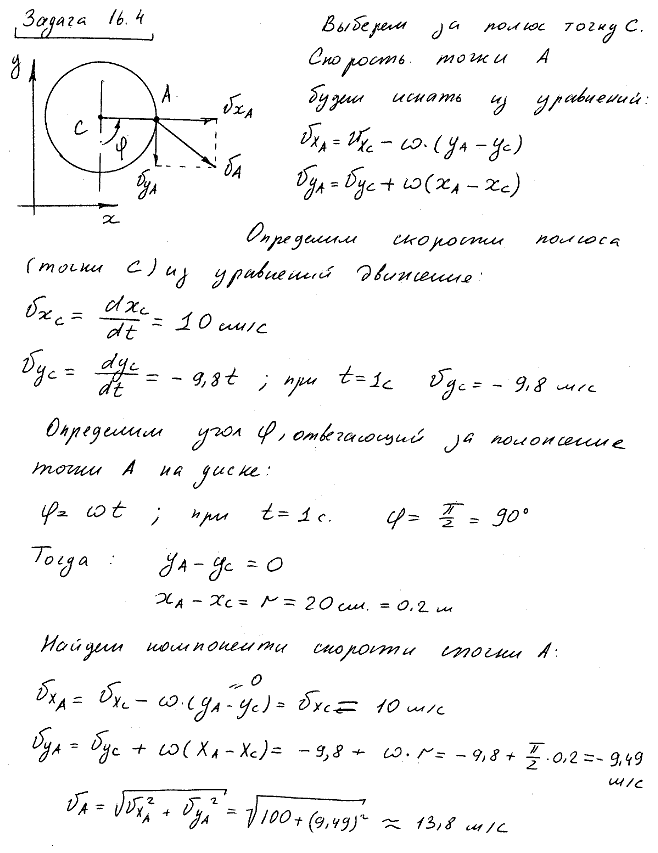 Задача 16.4
Выберем за полюс точку C.
Скорость точки A
будем искать из уравнений:
y
A
C
φ
υxA
υyA
υA
x
υxA = υxC − ω·(yA − yC)
υyA = υyC + ω(xA − xC)
Определим скорости полюса
(точки C) из уравнений движения:
υxC = dxC/dt = 10 м/с
υyC = dyC/dt = − 9,8t ; при t=1c υyC = − 9,8 м/с
Определим угол φ, отвечающий за положение
точки A на диске:
φ = ωt ; при t=1c. φ = π/2 = 90°
Тогда: yA − yC = 0
xA − xC = r = 20 см. = 0.2 м
Найдем компоненти скорости точки A:
= 0
υxA = υxC − ω·(yA − yC) = υxC = 10 м/с
υyA = υyC + ω(xA − xC) = −9,8 + ω·r = −9,8 + π/2·0,2 = −9,49
м/с
υA = √(υxA² + υyA²) = √(100 + (9,49)²) ≈ 13,8 м/с